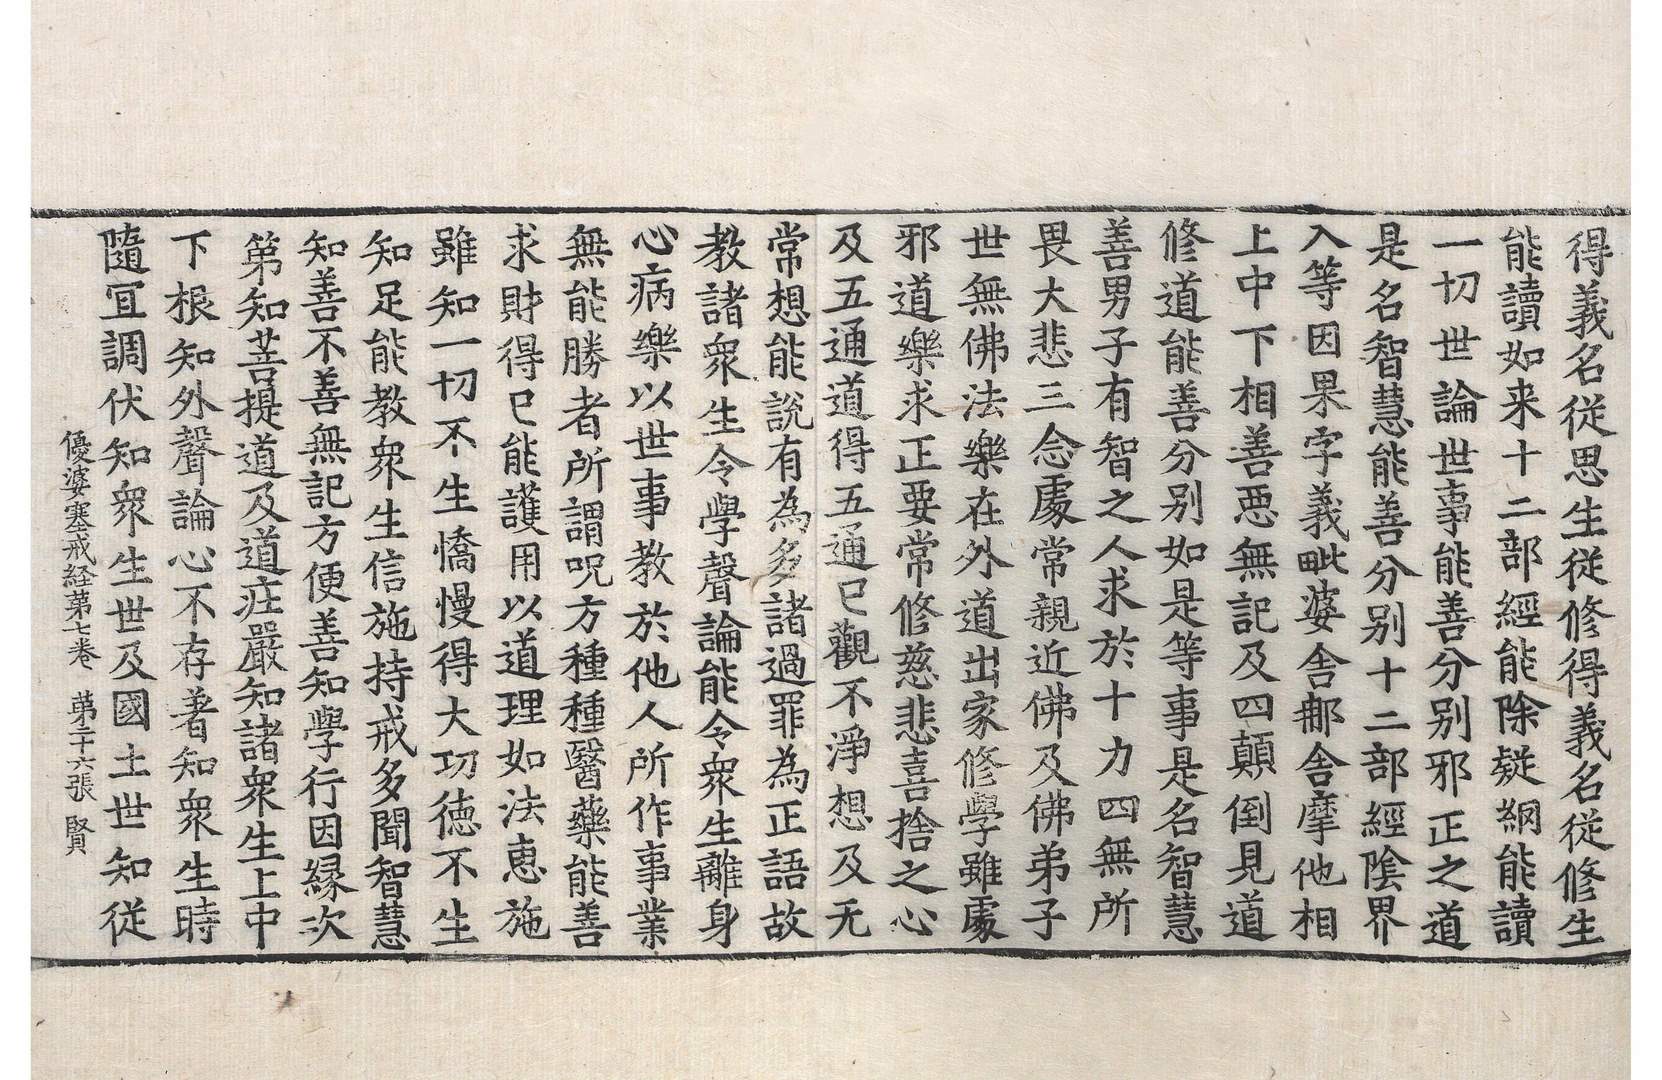 得義名從思生從修得義名從修生
能讀如来十二部經能除疑網能讀
一切世論世事能善分别邪正之道
是名智慧能善分别十二部經陰界
入等因果字義毗婆舍那舍摩他相
上中下相善惡無記及四顛倒見道
修道能善分别如是等事是名智慧
善男子有智之人求於十力四無所
畏大悲三念處常親近佛及佛弟子
世無佛法樂在外道出家修學雖處
邪道樂求正要常修慈悲喜捨之心
及五通道得五通已觀不淨想及无
常想能說有為多諸過罪為正語故
教諸衆生令學聲論能令衆生離身
心病樂以世事教於他人所作事業
無能勝者所謂呪方種種醫藥能善
求財得已能護用以道理如法惠施
雖知一切不生憍慢得大功德不生
知足能教衆生信施持戒多聞智慧
知善不善無記方便善知學行因緣次
第知菩提道及道莊嚴知諸衆生上中
下根知外聲論心不存著知衆生時
隨宜調伏知衆生世及國土世知從
優婆塞戒経苐七巻 苐二十六張 賢